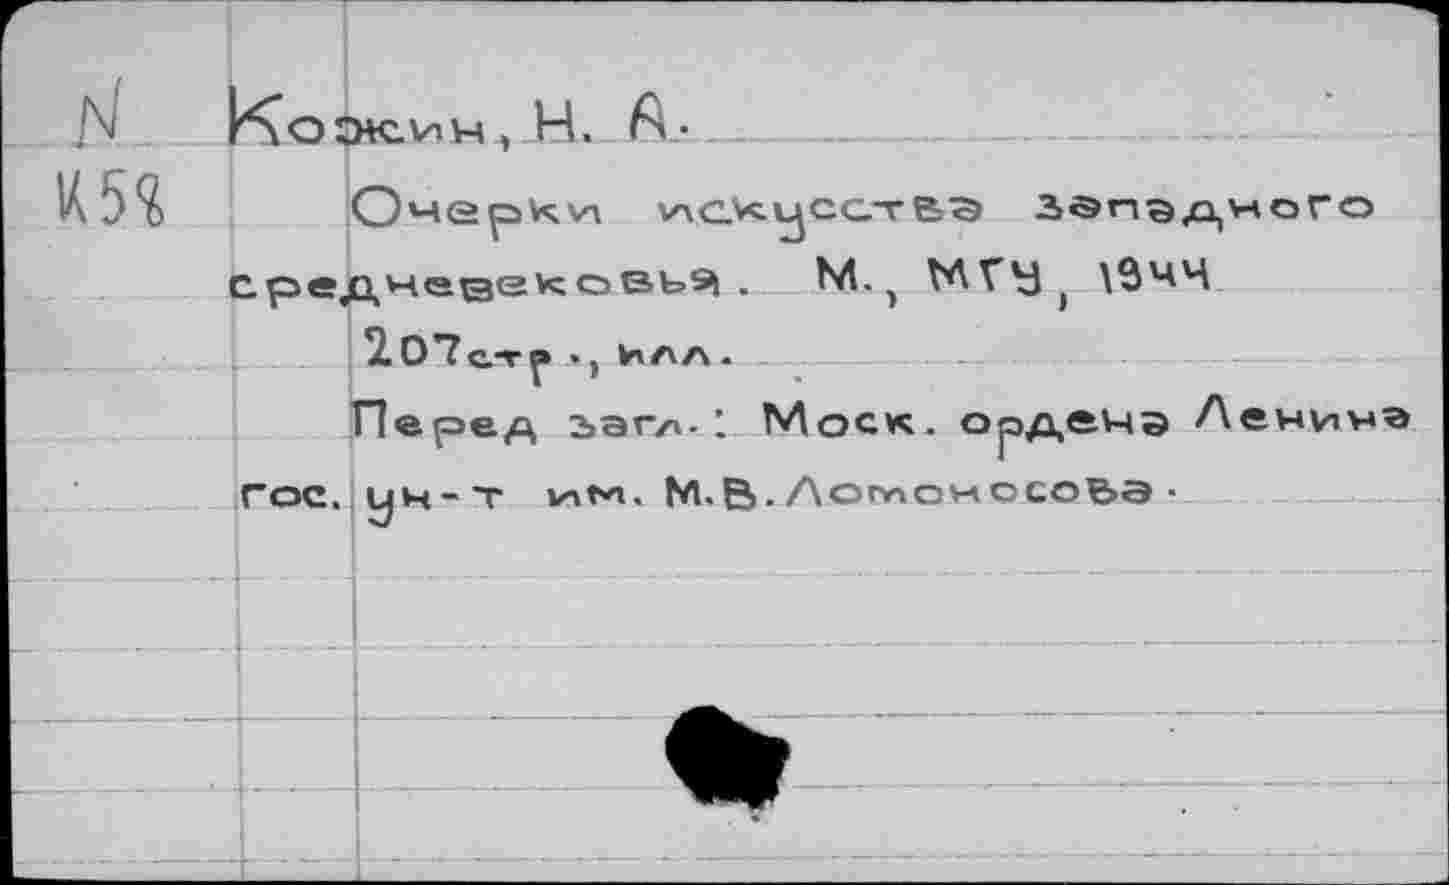 N Кожин, Н. А.
К58 Очерки искусства западного
средневековья. М., МГУ, 1944
207стр., илл.
Перед загл.: Моск. ордена Ленина
гос. ун-т им. М.В.Ломоносова.